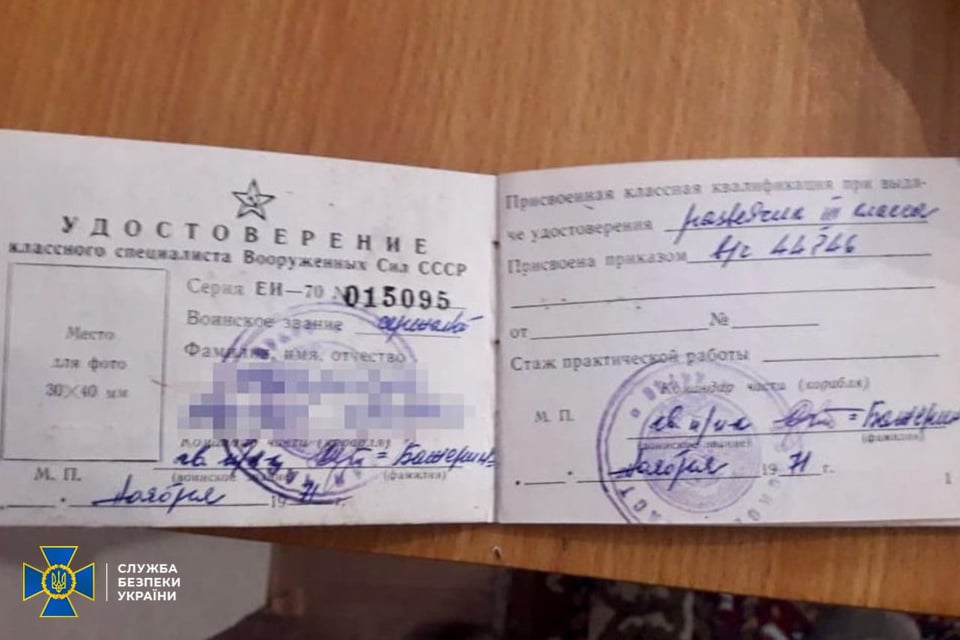 УДОСТОВЕРЕНИЕ
классного специалиста Вооруженных Сил СССР
Серия ЕИ—70 № 015095
Воинское звание
Фамилия, имя, отчество
Место
для фото
30×40 мм
Командир части (корабля)
гв п/п-к = Батерин
(воинское звание) (фамилия)
М. П.
ноября 1971 г.
Присвоенная классная квалификация при выда-
че удостоверения разведчик III класса
Присвоена приказом в/ч 44746
от № 
Стаж практической работы
Командир части (корабля)
М. П.
гв п/п-к
(воинское звание) (фамилия)
ноября 1971 г.
1
СЛУЖБА
БЕЗПЕКИ
УКРАЇНИ